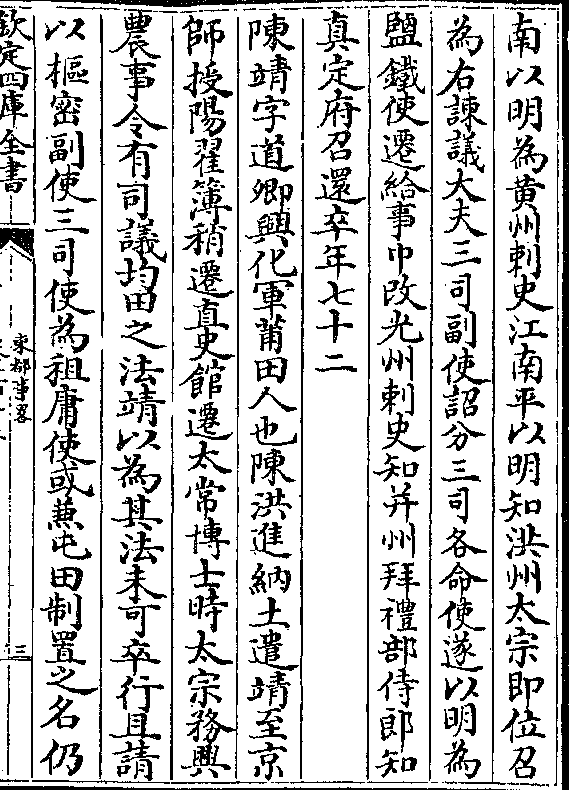 南以明為黄州刺史江南平以明知洪州太宗即位召
為右諫議大夫三司副使詔分三司各命使遂以明為
鹽鐵使遷給事中改光州刺史知并州拜禮部侍郎知
真定府召還卒年七十二
陳靖字道卿興化軍莆田人也陳洪進納土遣靖至京
師授陽翟簿稍遷直史館遷太常博士時太宗務興
農事令有司議均田之法靖以為其法未可卒行且請
以樞密副使三司使為租庸使或兼屯田制置之名仍
欽定四庫全書
東都事畧
三